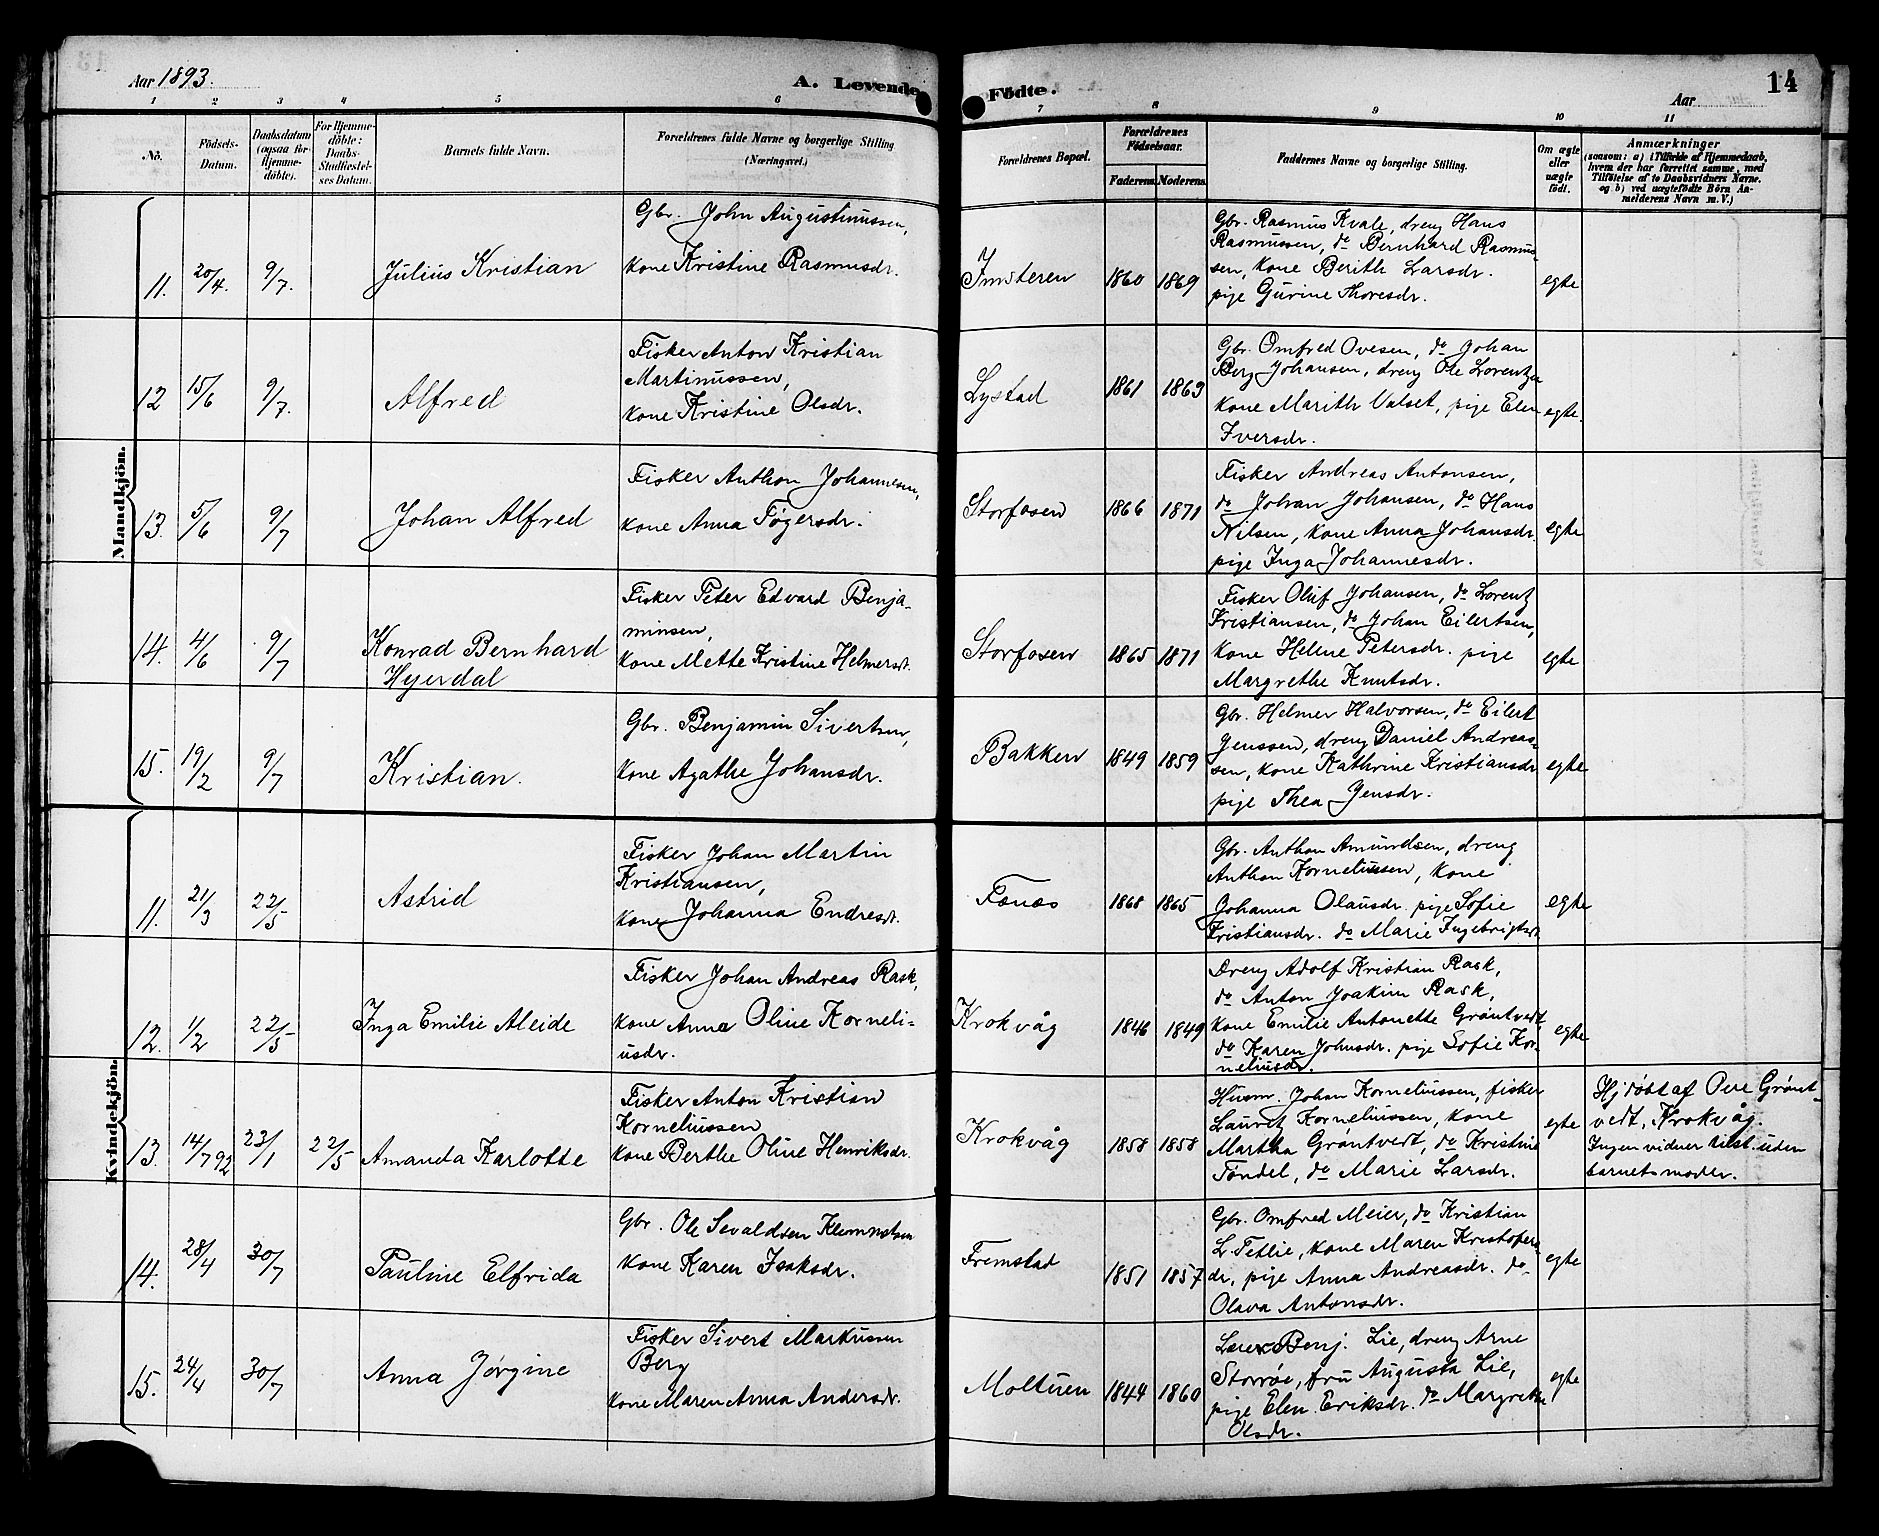 Aar 1893.
A. Levende
Födte.
Aar
14
1 2 3 4 5 6 7 8 9 10 11
No.
Födsels-
Datum.
Daabsdatum
(ogsaa for
Hjemme-
döbte).
For Hjemme-
döbte:
Daabs-
Stadfæstel-
ses Datum.
Barnets fulde Navn.
Forældrenes fulde Navne og borgerlige Stilling
(Næringsvei.)
Forældrenes Bopæl.
Forældrenes
Födselsaar.
Faderens. Moderens.
Faddernes Navne og borgerlige Stilling.
Om ægte
eller
uægte
födt.
Anmærkninger
(saasom: a) i Tilfælde af Hjemmedaab,
hvem der har forrettet samme, med
Tilföielse af to Daabsvidners Navne.
og b) ved uægtefödte Börn An-
melderens Navn m. V.)
Mandkjön.
11. 20/4. 9/7. Julius Kristian
Gbr. John Augustinussen,
kone Kristine Rasmusdr.
Imsteren 1860 1869
Gbr. Rasmus Kvale, dreng Hans
Rasmussen, do Bernhard Rasmus-
sen, kone Berith Larsdr.
pige Gurine Thoresdr.
egte
12 15/6 9/7. Alfred
Fisker Anton Kristian
Martinussen,
kone Kristine Olsdr.
Lystad 1861 1863
Gbr. Omfred Ovesen, do Johan
Berg Johansen, dreng Ole Lorentzen
kone Marith Valset, pige Elen
Iversdr.
egte.
13. 5/6 9/7 Johan Alfred
Fisker Anthon Johannesen,
kone Anna Føgersdr.
Storfosen 1866 1871
Fisker Andreas Antonsen,
do Johan Johansen, do Hans
Nilsen, kone Anna Johansdr.
pige Inga Johannesdr.
egte
14. 4/6 9/7 Konrad Bernhard
Hyerdal
Fisker Peter Edvard Benja-
minsen,
kone Mette Kristine Helmersdr.
Storfosen 1865 1871
Fisker Oluf Johansen, do Lorentz
Kristiansen, do Johan Eilertsen,
kone Helene Petersdr. pige
Margrethe Knutsdr.
egte
15. 19/2 9/7 Kristian.
Gbr. Benjamin Sivertsen,
kone Agathe Johansdr.
Bakken 1849 1859
Gbr. Helmer Halvorsen, do Eilert
Jenssen, dreng Daniel Andreas-
sen, kone Kathrine Kristiansdr
pige Thea Jensdr.
egte
Kvindekjön.
11. 21/3 22/5 Astrid
Fisker Johan Martin
Kristiansen,
kone Johanna Endresdr.
Fænæs 1868 1865
Gbr. Anthon Amundsen, dreng
Anthon Korneliussen, kone
Johanna Olausdr. pige Sofie
Kristiansdr. do Marie Ingebrigtsdr.
egte
12. 1/2 22/5 Inga Emilie Aleide
Fisker Johan Andreas Rask,
kone Anna Oline Korneli-
usdr.
Krokvåg 1846 1849
Dreng Adolf Kristian Rask,
do Anton Joakim Rask,
kone Emilie Antonette Grøntvedt,
do Karen Johnsdr. pige Sofie Kor-
neliusdr.
egte
13. 14/7 92 23/1 22/5 Amanda Karlotte
Fisker Anton Kristian
Korneliussen
kone Berthe Oline Henriksdr.
Krokvåg 1858 1858
Husm. Johan Korneliussen, fisker
Lauritz Korneliussen, kone
Martha Grøntvedt, do Kristine
Tøndel, do Marie Larsdr.
egte
Hj.døbt af Ove Grønt-
vedt, Krokvåg.
Ingen vidner tilst. uden
barnets moder.
14. 28/4 30/7 Pauline Elfrida
Gbr. Ole Sevaldsen Klemmetsen
kone Karen Isaksdr.
Fremstad 1851 1857
Gbr. Omfred Meier, do Kristian
L. Tetlie, kone Maren Kristofers-
dr, pige Anna Andreasdr. do
Olava Antonsdr.
egte
15. 24/4 30/7 Anna Jørgine
Fisker Sivert Markussen
Berg
kone Maren Anna Andersdr.
Moltuen 1844 1860
Lærer Benj. Lie, dreng Arne
Storrøe, fru Augusta Lie,
pige Elen Eriksdr. do Margrethe
Olsdr.
egte